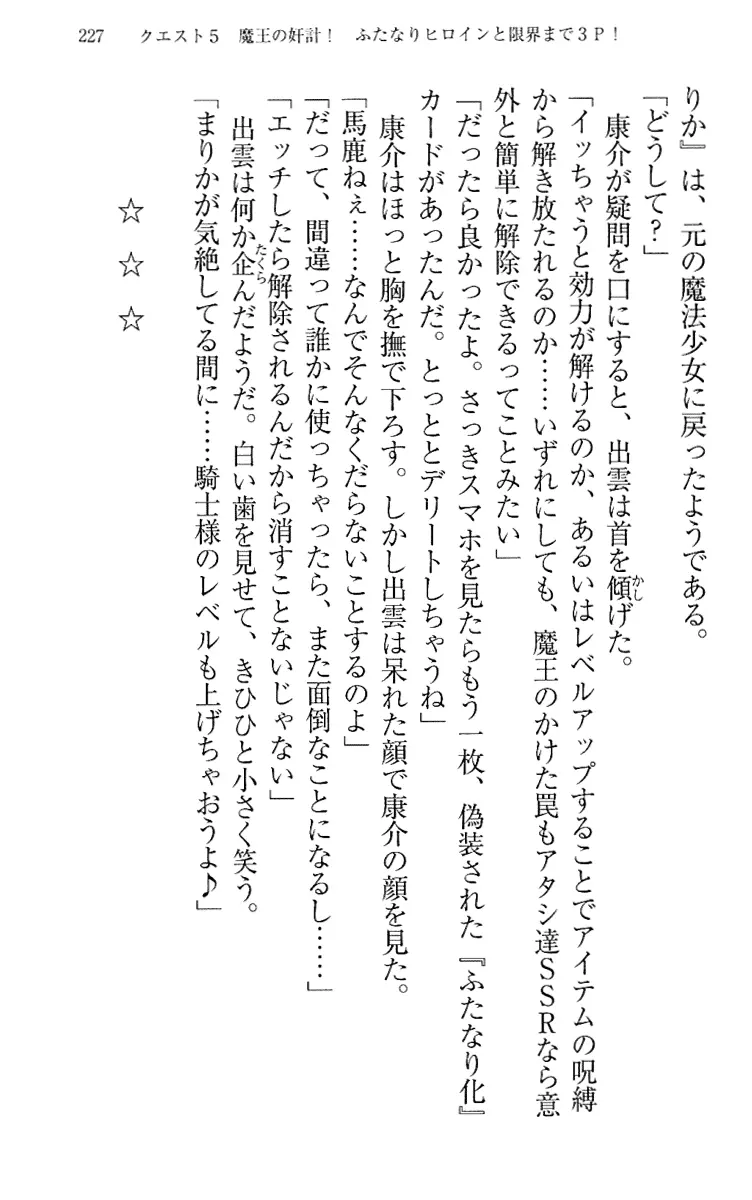 227　クエスト５　魔王の奸計！　ふたなりヒロインと限界まで３Ｐ！
りか』は、元の魔法少女に戻ったようである。
「どうして？」
　康介が疑問を口にすると、出雲は首を傾げた。
「イッちゃうと効力が解けるのか、あるいはレベルアップすることでアイテムの呪縛
から解き放たれるのか……いずれにしても、魔王のかけた罠もアタシ達ＳＳＲなら意
外と簡単に解除できるってことみたい」
「だったら良かったよ。さっきスマホを見たらもう一枚、偽装された『ふたなり化』
カードがあったんだ。とっととデリートしちゃうね」
　康介はほっと胸を撫で下ろす。しかし出雲は呆れた顔で康介の顔を見た。
「馬鹿ねぇ……なんでそんなくだらないことするのよ」
「だって、間違って誰かに使っちゃったら、また面倒なことになるし……」
「エッチしたら解除されるんだから消すことないじゃない」
　出雲は何か企んだようだ。白い歯を見せて、きひひと小さく笑う。
「まりかが気絶してる間に……騎士様のレベルも上げちゃおうよ♪」
☆　☆　☆